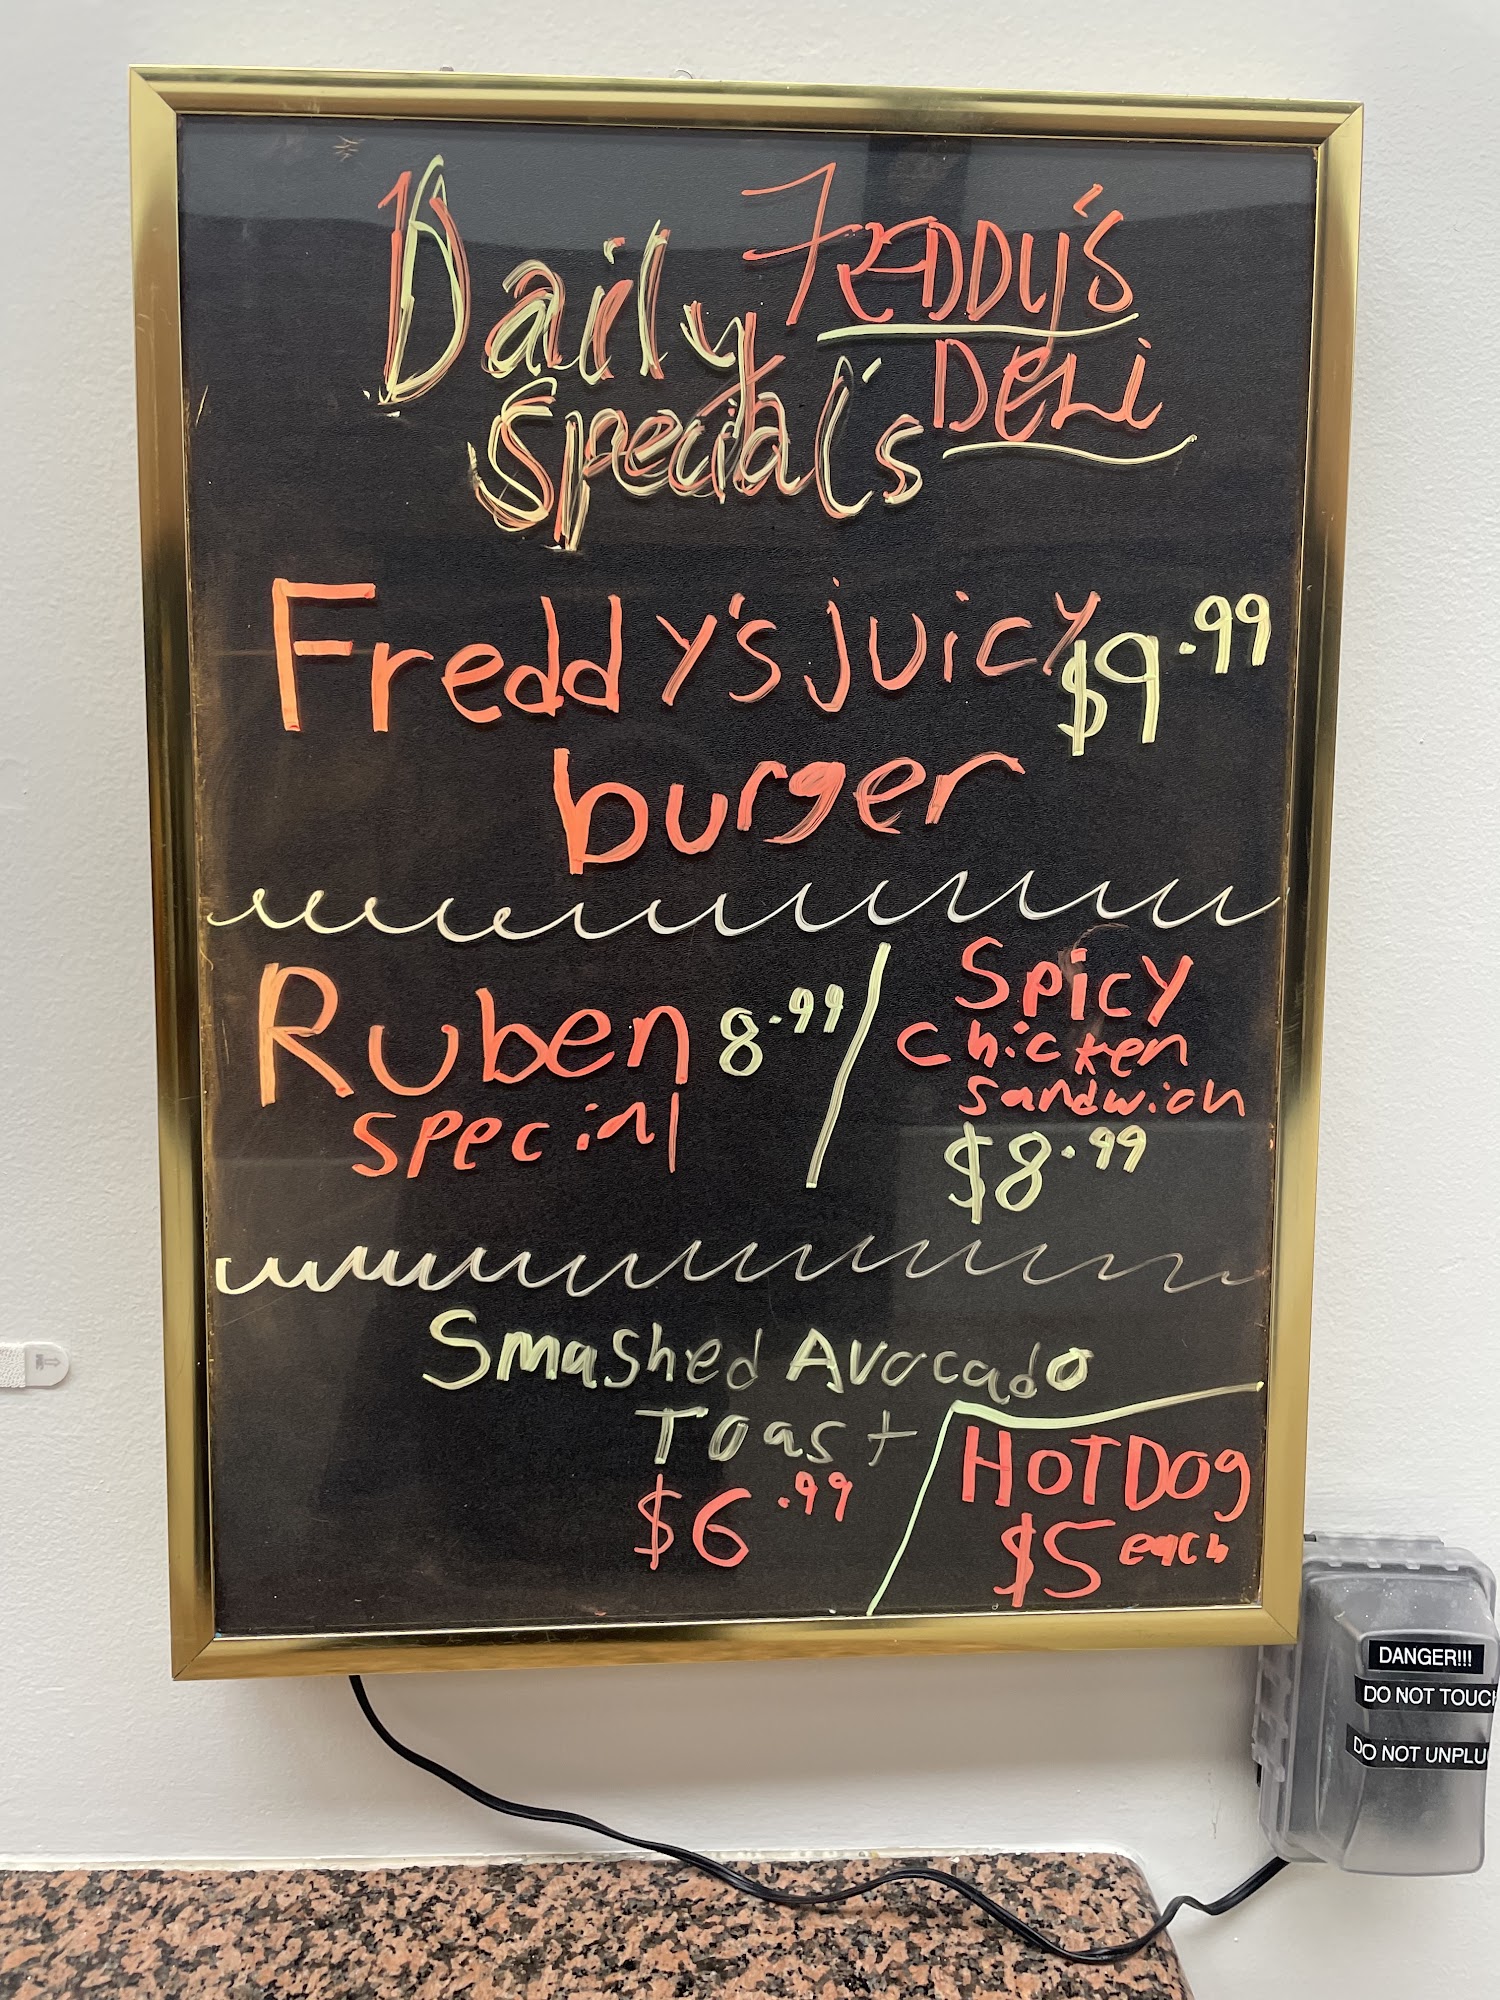 Daily
Special's
FREDDY'S
DELi
Freddy's juicy $9.99
burger
Ruben 8.99
special
Spicy
chicken
sandwich
$8.99
Smashed Avocado
Toast
$6.99
HOTDOg
$5 each
DANGER!!!
DO NOT TOUCH
DO NOT UNPLU